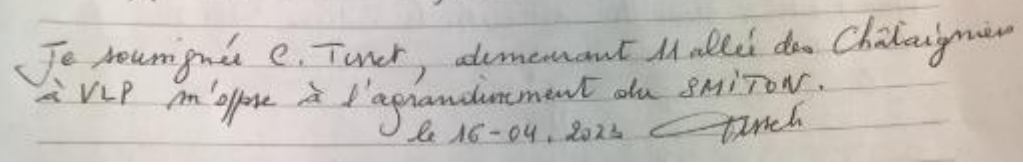 Je soussignée C. Tinet, demeurant 11 allée des Châtaigniers
à VLP m'oppose à l'agrandissement du SMITON.
le 16-04.2023